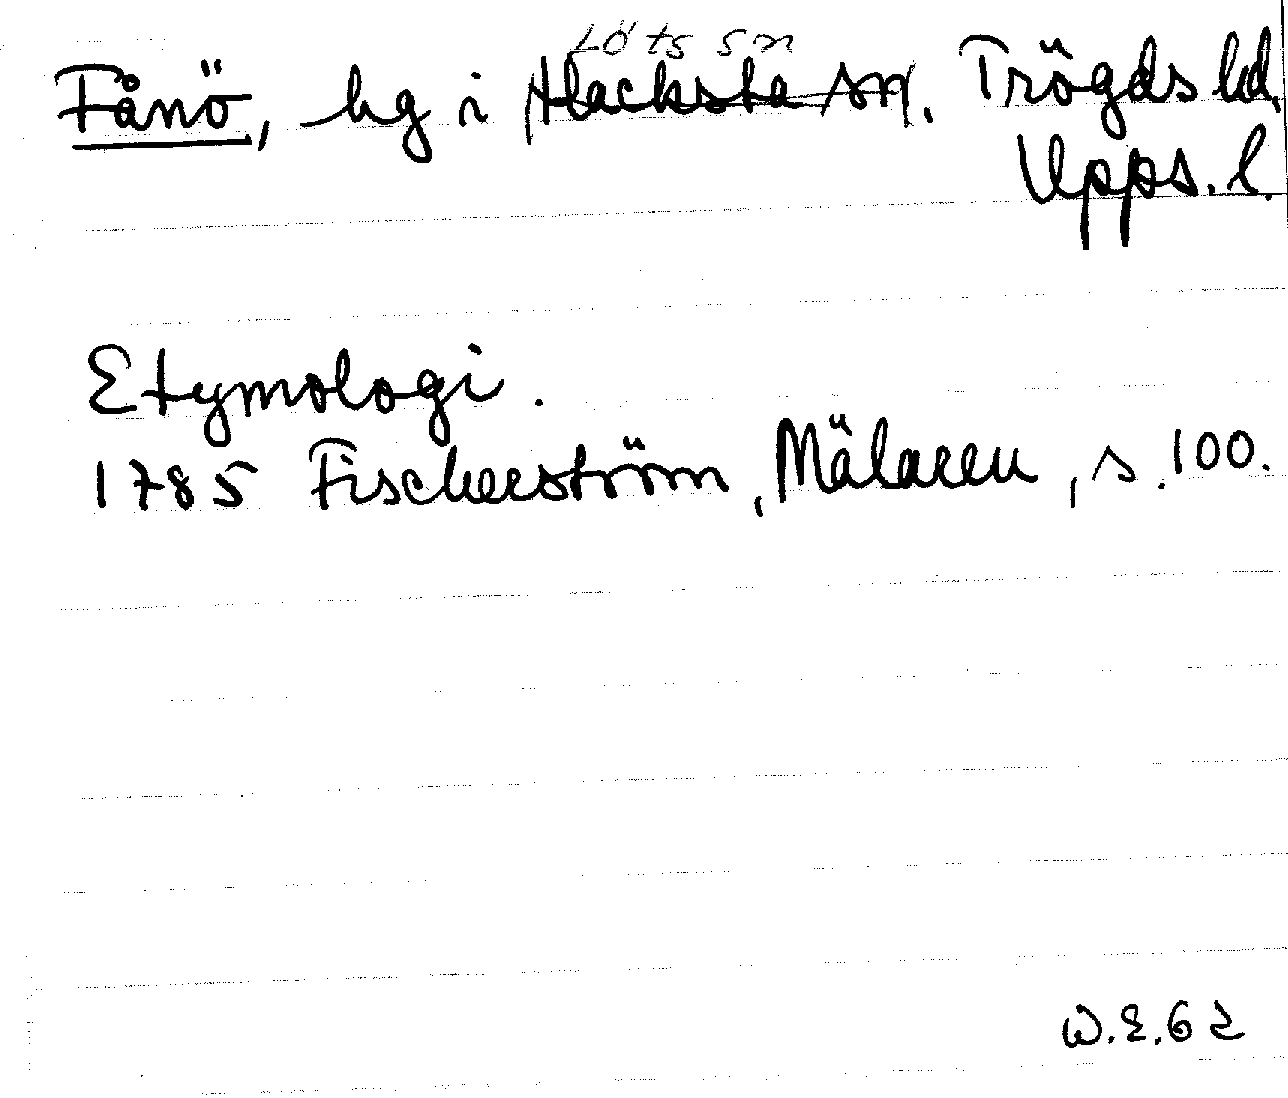 Löts sn
Fånö, hg i Hacksta sn. Trögds hd.
Upps. l.
Etymologi.
1785 Fischerström, Mälaren, s. 100.
W.E.62